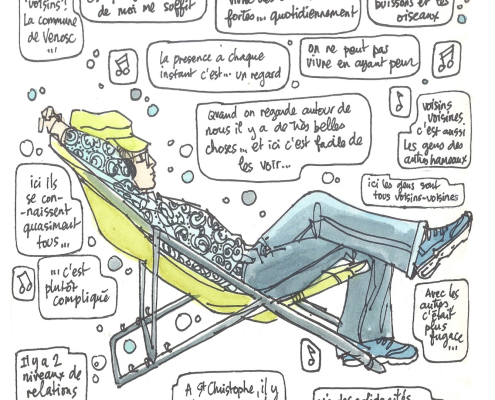 voisins"!
La commune
de Venosc
...
de moi me suffit
fortes... quotidiennement
buissons et les
oiseaux
La présence à chaque
instant c'est... un regard
on ne peut pas
vivre en ayant peur
Quand on regarde autour de
nous il y a de très belles
choses... et ici c'est facile de
les voir...
voisins
voisines
c'est aussi
Les gens des
autres hameaux
ici ils
se con-
-naissent
quasiment
tous...
ici les gens sont
tous voisins-voisines
... c'est
plutôt
compliqué
Avec les
autres
c'était
plus
fugace
...
Il y a 2
niveaux de
relations
A St Christophe, il y